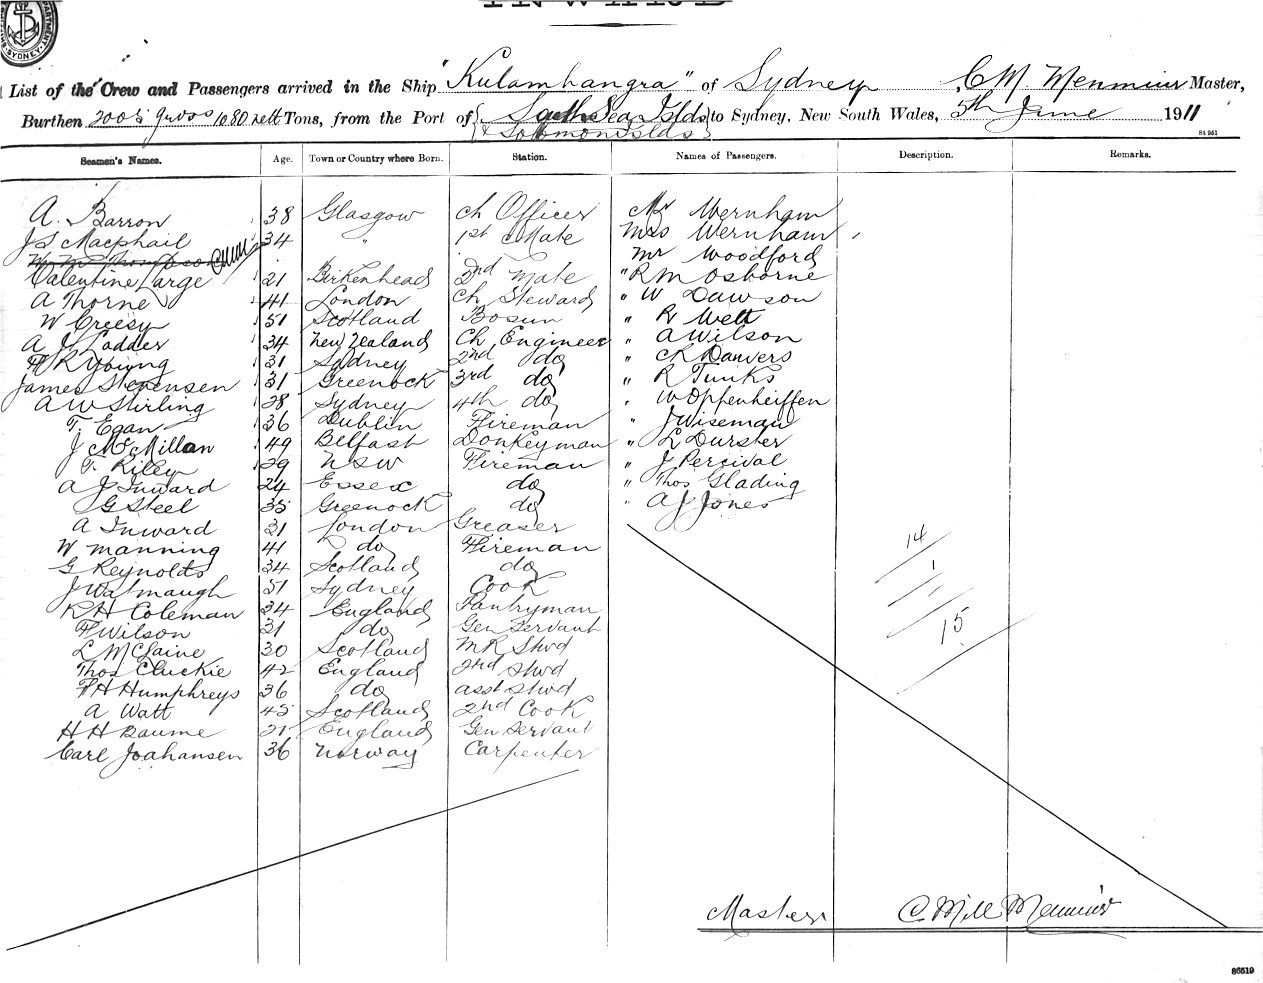 INWARD
SYDNEY
List of the Crew and Passengers arrived in the Ship "Kulambangra" of Sydney, C M. Menmuir Master,
Burthen 2005 gross 1080 nett Tons, from the Port of South Sea Islds to Sydney, New South Wales, 5th June 1911
& Solomon Islds
St 951
Seamen's Names. Age. Town or Country where Born. Station. Names of Passengers. Description. Remarks.
A. Barron 38 Glasgow Ch Officer Mr Wernham
J S Macphail 34 " 1st Mate Mrs Wernham
Thompson CMM Mr Woodford
Valentine Large 21 Birkenhead 2nd Mate " R M Osborne
A Thorne 41 London Ch Steward " W Dawson
W Creesy 51 Scotland Bosun " R Wett
A J Ladder 34 New Zealand Ch Engineer " A Wilson
R Young 31 Sydney 2nd do " Danvers
James Stepensen 31 Greenock 3rd do " R Tunks
A W Stirling 28 Sydney 4th do " W Oppenheiffen
T. Egan 36 Dublin Fireman " J Wiseman
J McMillan 49 Belfast Donkeyman " L Durster
T. Riley 29 NSW Fireman " J Percival
A J Inward 24 Essex do " Thos Glading
G Steel 35 Greenock do " A J Jones
A Inward 31 London Greaser
W Manning 41 do Fireman 14
G Reynolds 34 Scotland do 1
J Walmaugh 51 Sydney Cook
R H Coleman 34 England Pantryman
F Wilson 31 do Gen Servant 15
L McClaine 30 Scotland M R Stwd
Thos Cluckie 42 England 2nd Stwd
F H Humphreys 36 do asst Stwd
A Watt 45 Scotland 2nd Cook
H H Baume 21 England Gen Servant
Carl Joahansen 36 Norway Carpenter
Master C Mill Menmuir
86519